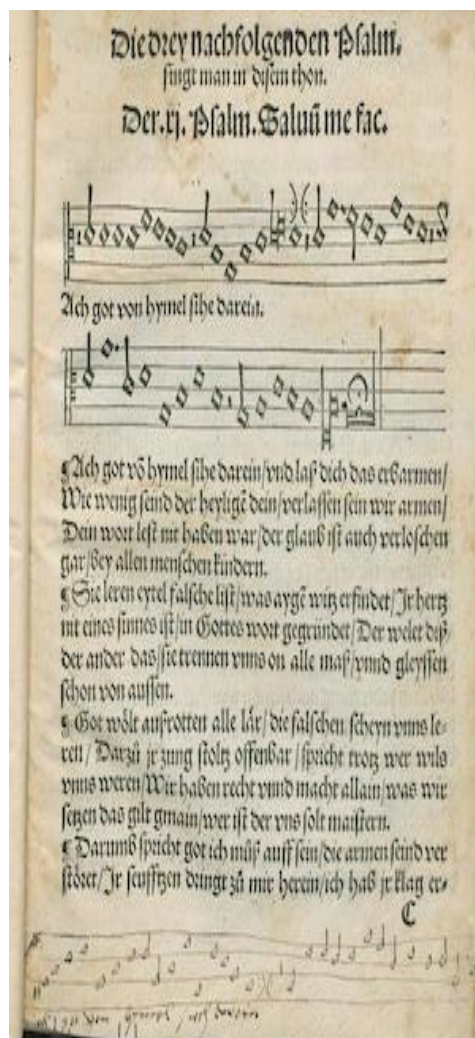 Die drey nachfolgenden Psalm.
singt man in disem thon.
Der.xj. Psalm. Saluū me fac.
Ach got von hymel sihe darein.
¶ Ach got vō hymel sihe darein/vnd laß dich das erbarmen/
Wie wenig seind der heyligē dein/verlassen sein wir armen/
Dein wort lest nit haben war/der glaub ist auch verloschen
gar/bey allen menschen kindern.
¶ Sie leren eytel falsche list/was aygē witz erfindet/Jr hertz
nit eines sinnes ist/in Gottes wort gegründet/Der welet diß/
der ander das/sie trennen vnns on alle maß/vnnd gleyssen
schon von aussen.
¶ Got wölt außrotten alle lär/die falschen scheyn vnns le-
ren/Darzů jr zung stoltz offenbar/spricht trotz wer wils
vnns weren/Wir haben recht vnnd macht allain/was wir
setzen das gilt gmain/wer ist der vns solt maistern.
¶ Darumb spricht got ich můß auff sein/die armen seind ver
störet/Jr seufftzen dringt zů mir herein/ich hab jr klag er-
C